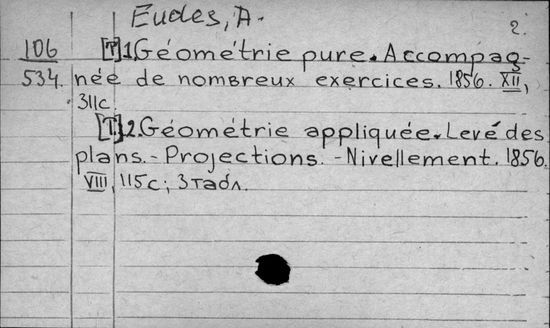 Eudes, A.
2.
106
534.
[T]1. Géométrie pure. Accompag-
née de nombreux exercices. 1856. XII,
311c.
[T.]2. Géométrie appliquée. Levé des
plans. - Projections. - Nivellement. 1856.
VIII, 115c; 3 табл.